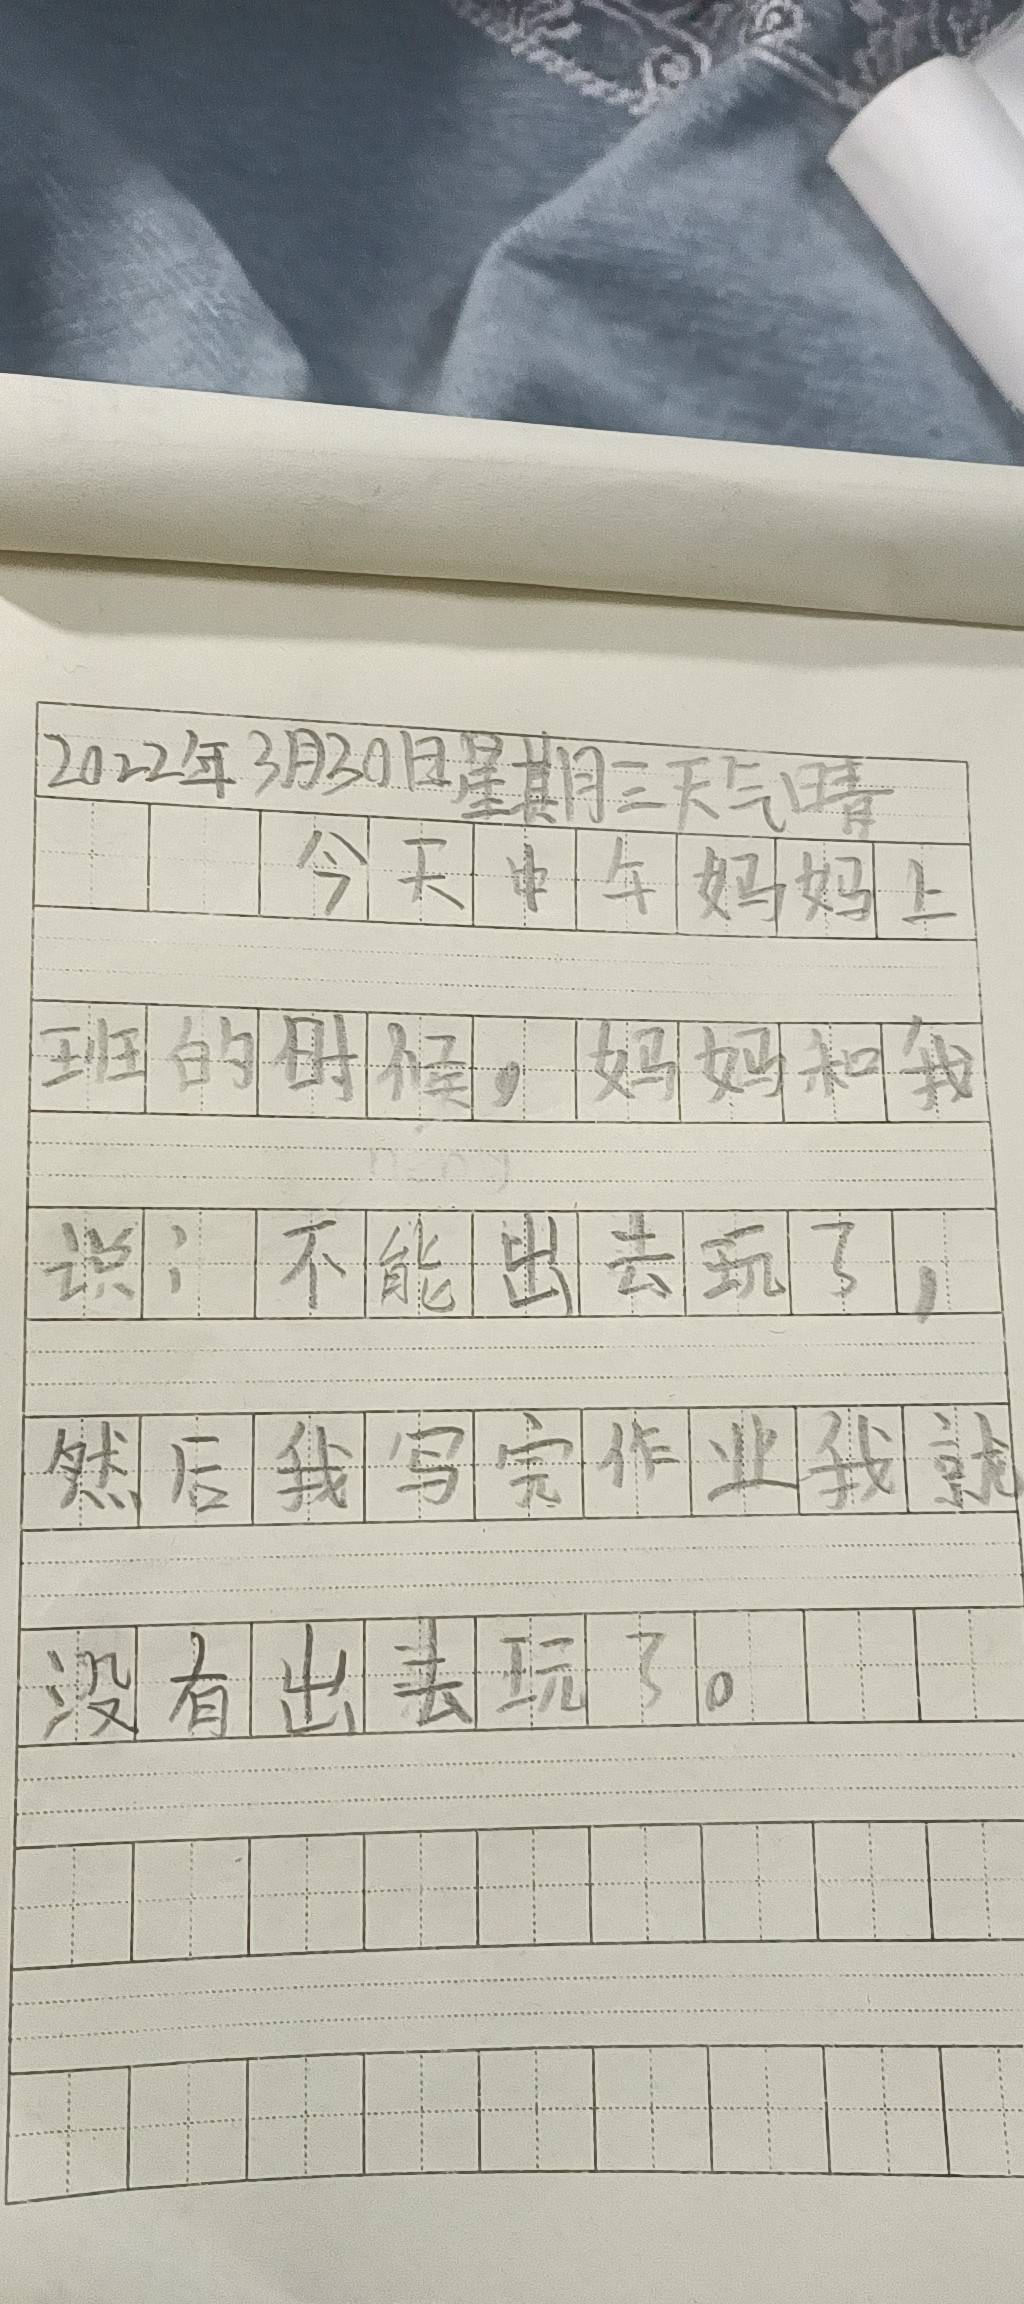 2022年3月30日星期三天气晴
今天中午妈妈上
班的时候，妈妈和我
说：不能出去玩了，
然后我写完作业我就
没有出去玩了。